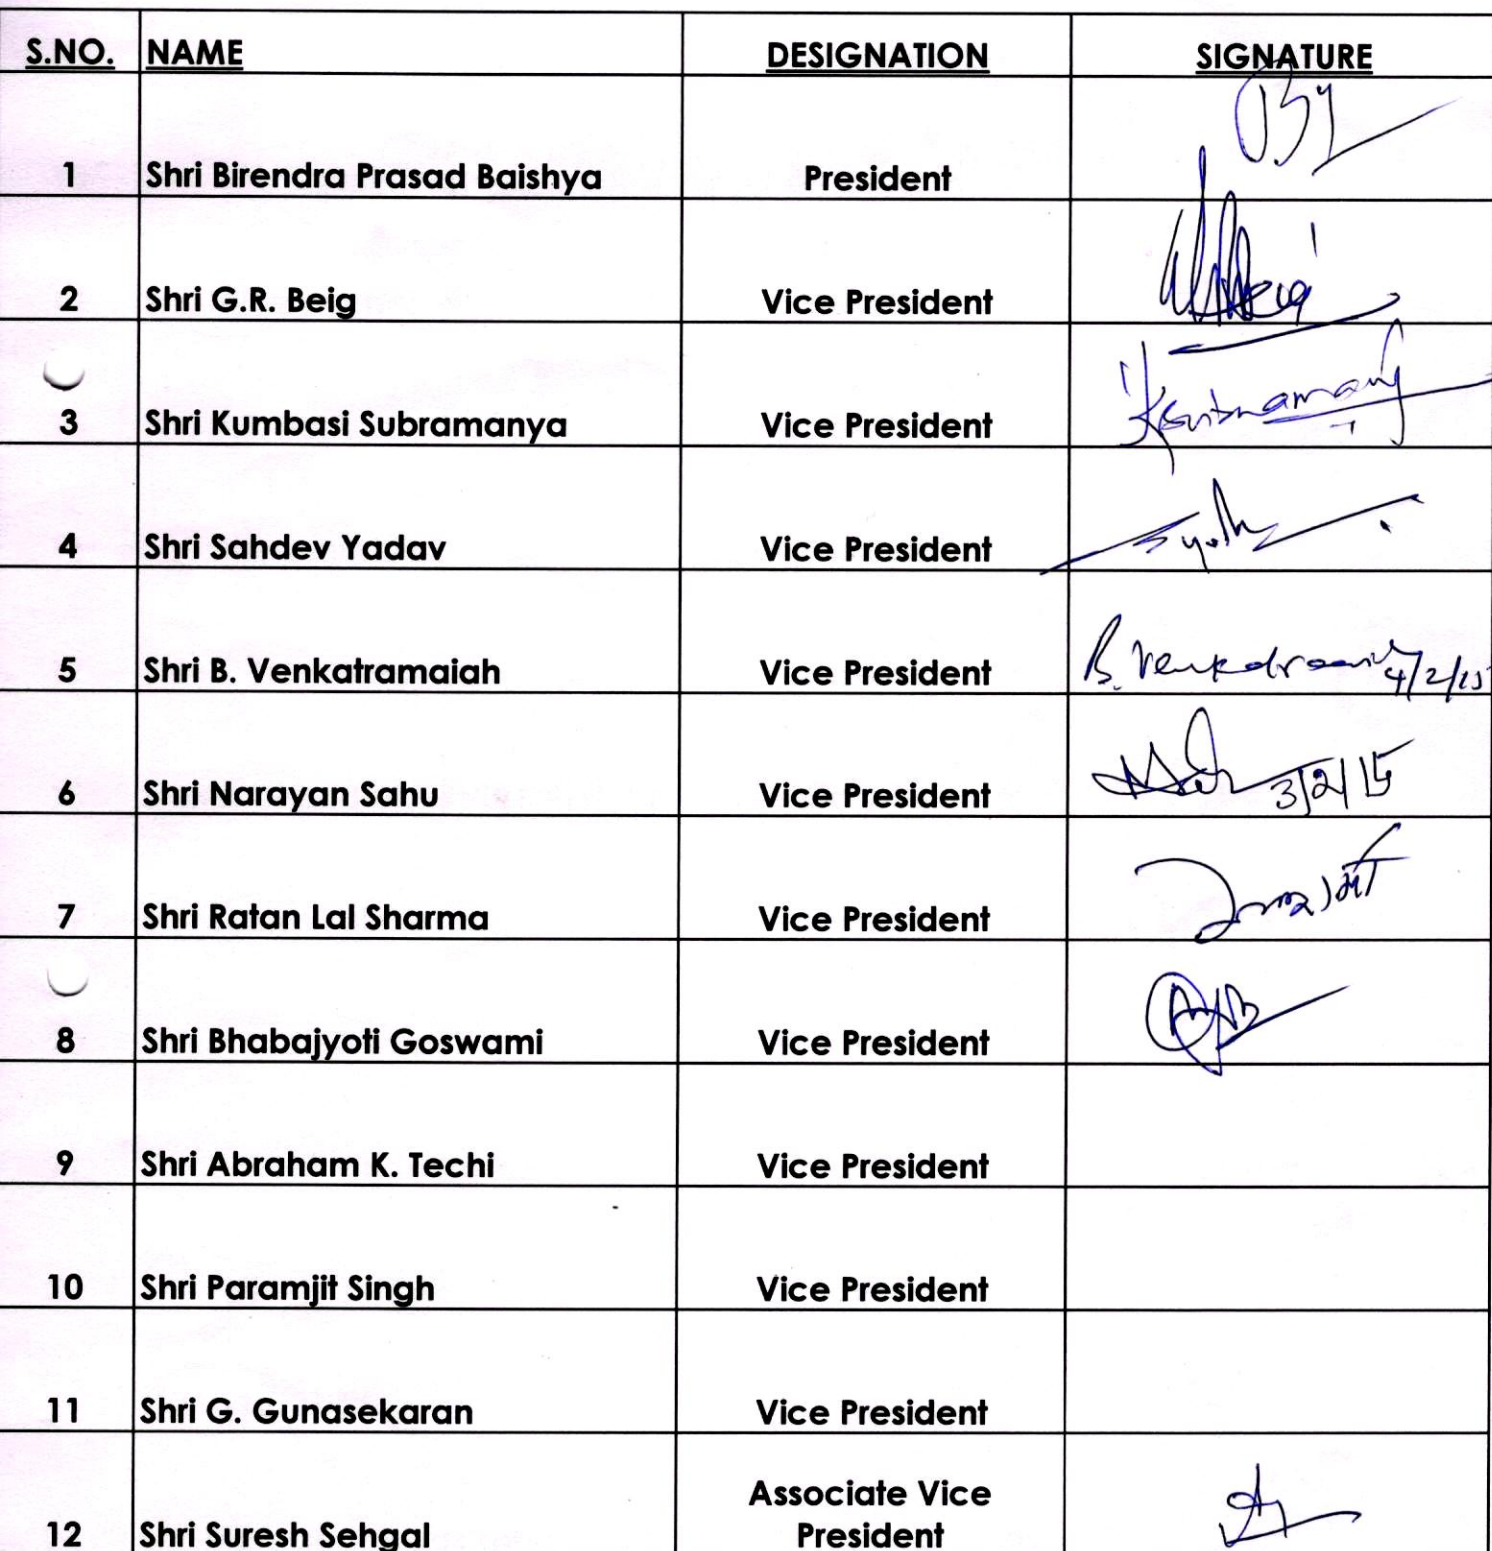 S.NO. NAME DESIGNATION SIGNATURE
1 Shri Birendra Prasad Baishya President
2 Shri G.R. Beig Vice President
3 Shri Kumbasi Subramanya Vice President
4 Shri Sahdev Yadav Vice President
5 Shri B. Venkatramaiah Vice President B. Venkatramaiah 4/2/15
6 Shri Narayan Sahu Vice President 3/2/15
7 Shri Ratan Lal Sharma Vice President
8 Shri Bhabajyoti Goswami Vice President
9 Shri Abraham K. Techi Vice President
10 Shri Paramjit Singh Vice President
11 Shri G. Gunasekaran Vice President
Associate Vice
12 Shri Suresh Sehgal President